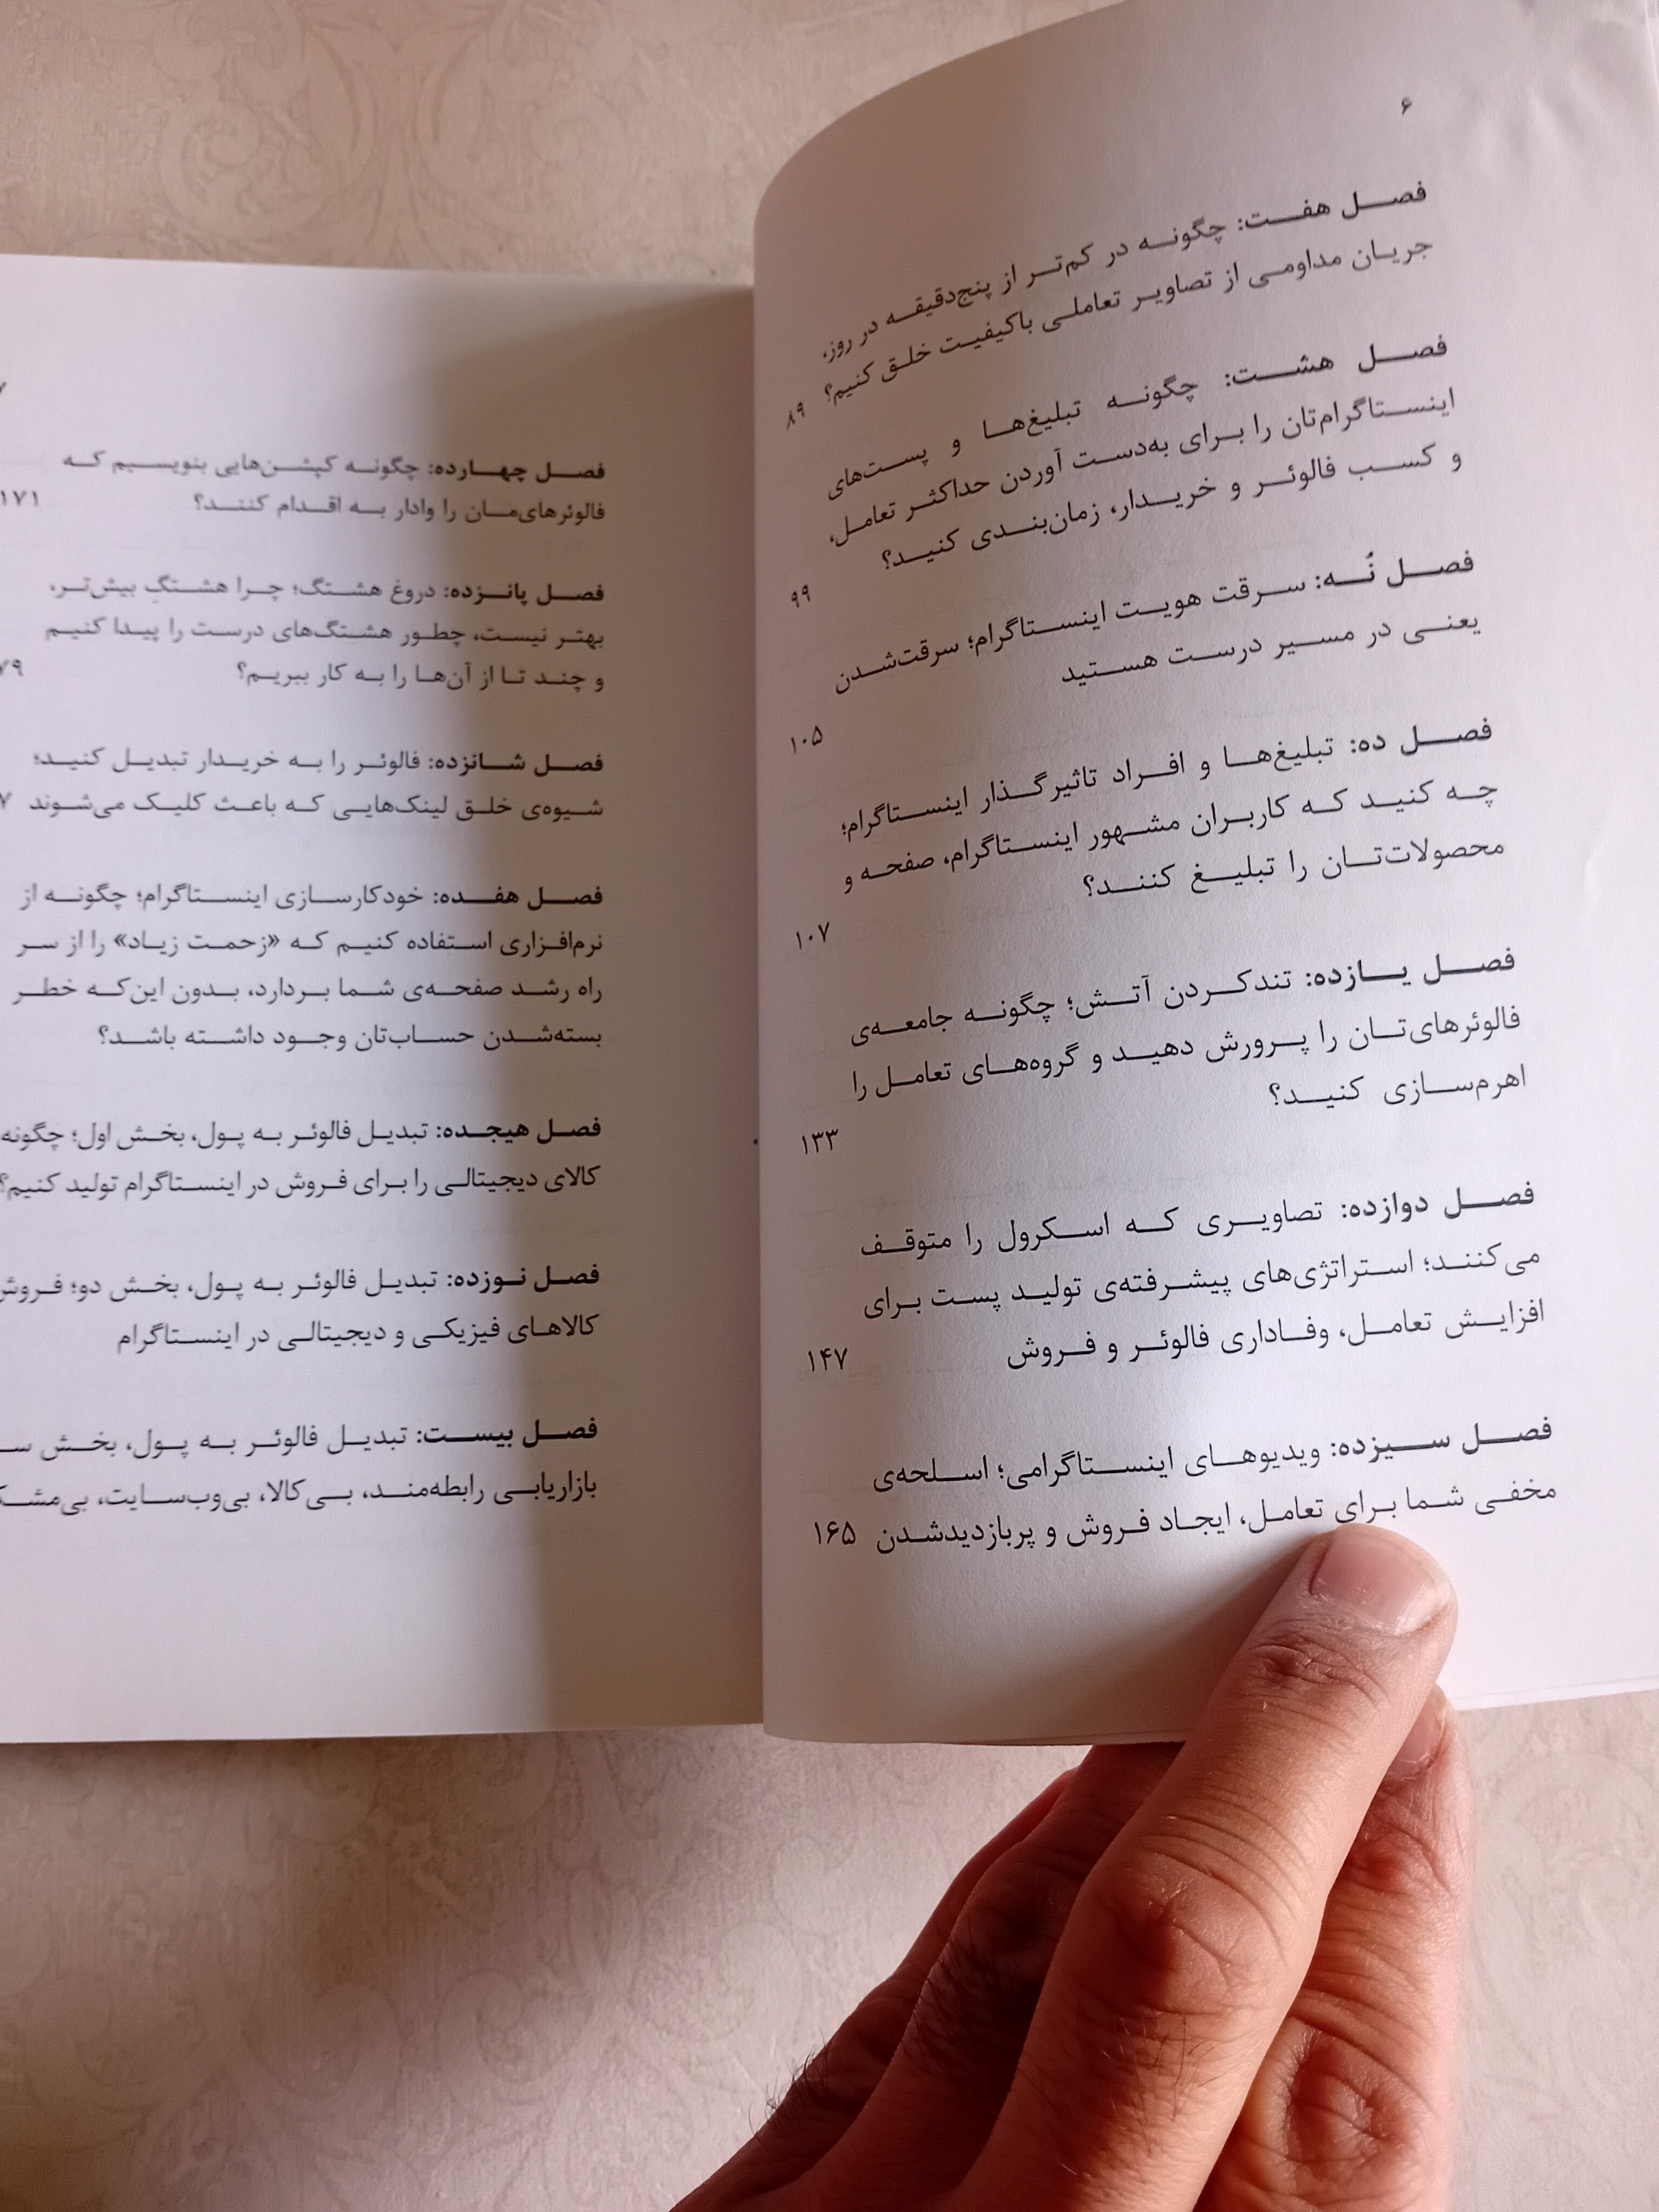 ۶
فصل هفت: چگونه در کم‌تر از پنج‌دقیقه در روز،
جریان مداومی از تصاویر تعاملی باکیفیت خلق کنیم؟ ۸۹
فصل هشت: چگونه تبلیغ‌ها و پست‌های
اینستاگرام‌تان را برای به‌دست آوردن حداکثر تعامل،
و کسب فالوئر و خریدار، زمان‌بندی کنید؟ ۹۹
فصل نُه: سرقت هویت اینستاگرام؛ سرقت‌شدن
یعنی در مسیر درست هستید ۱۰۵
فصل ده: تبلیغ‌ها و افراد تاثیرگذار اینستاگرام؛
چه کنید که کاربران مشهور اینستاگرام، صفحه و
محصولات‌تان را تبلیغ کنند؟ ۱۰۷
فصل یازده: تندکردن آتش؛ چگونه جامعه‌ی
فالوئرهای‌تان را پرورش دهید و گروه‌های تعامل را
اهرم‌سازی کنید؟ ۱۳۳
فصل دوازده: تصاویری که اسکرول را متوقف
می‌کنند؛ استراتژی‌های پیشرفته‌ی تولید پست برای
افزایش تعامل، وفاداری فالوئر و فروش ۱۴۷
فصل سیزده: ویدیوهای اینستاگرامی؛ اسلحه‌ی
مخفی شما برای تعامل، ایجاد فروش و پربازدیدشدن ۱۶۵
فصل چهارده: چگونه کپشن‌هایی بنویسیم که
فالوئرهای‌مان را وادار به اقدام کنند؟ ۱۷۱
فصل پانزده: دروغ هشتگ؛ چرا هشتگِ بیش‌تر،
بهتر نیست، چطور هشتگ‌های درست را پیدا کنیم
و چند تا از آن‌ها را به کار ببریم؟ ۷۹
فصل شانزده: فالوئر را به خریدار تبدیل کنید؛
شیوه‌ی خلق لینک‌هایی که باعث کلیک می‌شوند ۷
فصل هفده: خودکارسازی اینستاگرام؛ چگونه از
نرم‌افزاری استفاده کنیم که «زحمت زیاد» را از سر
راه رشد صفحه‌ی شما بردارد، بدون این‌که خطر
بسته‌شدن حساب‌تان وجود داشته باشد؟
فصل هیجده: تبدیل فالوئر به پول، بخش اول؛ چگونه
کالای دیجیتالی را برای فروش در اینستاگرام تولید کنیم؟
فصل نوزده: تبدیل فالوئر به پول، بخش دو؛ فروش
کالاهای فیزیکی و دیجیتالی در اینستاگرام
فصل بیست: تبدیل فالوئر به پول، بخش
بازاریابی رابطه‌مند، بی‌کالا، بی‌وب‌سایت،